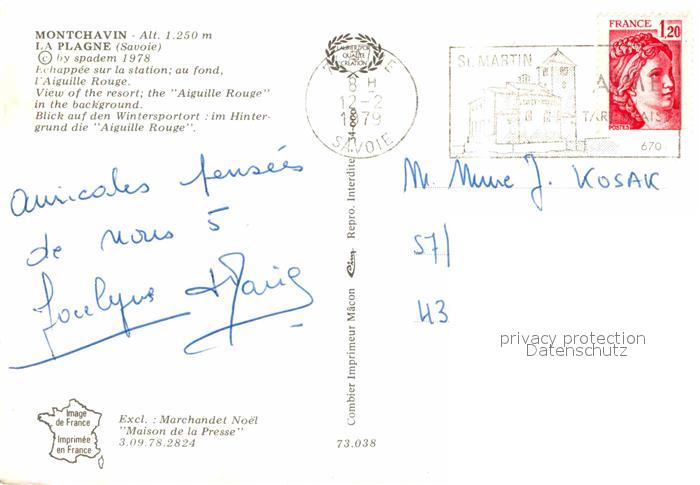 MONTCHAVIN - Alt. 1.250 m
LA PLAGNE (Savoie)
© by spadem 1978
Echappée sur la station; au fond,
l'Aiguille Rouge.
View of the resort; the "Aiguille Rouge"
in the background.
Blick auf den Wintersportort : im Hinter-
grund die "Aiguille Rouge".
LAURIER D'OR
QUALITE
CREATION
8 H
12-2
1979
SAVOIE
St. MARTIN
670
FRANCE
1,20
POSTES
amicales pensées
de nous 5
Jocelyne
M. Mme J. KOSAK
57/
43
privacy protection
Datenschutz
Combier Imprimeur Mâcon Cim Repro. Interdite
Image
de France
Imprimée
en France
Excl. : Marchandet Noël
"Maison de la Presse"
3.09.78.2824
73.038